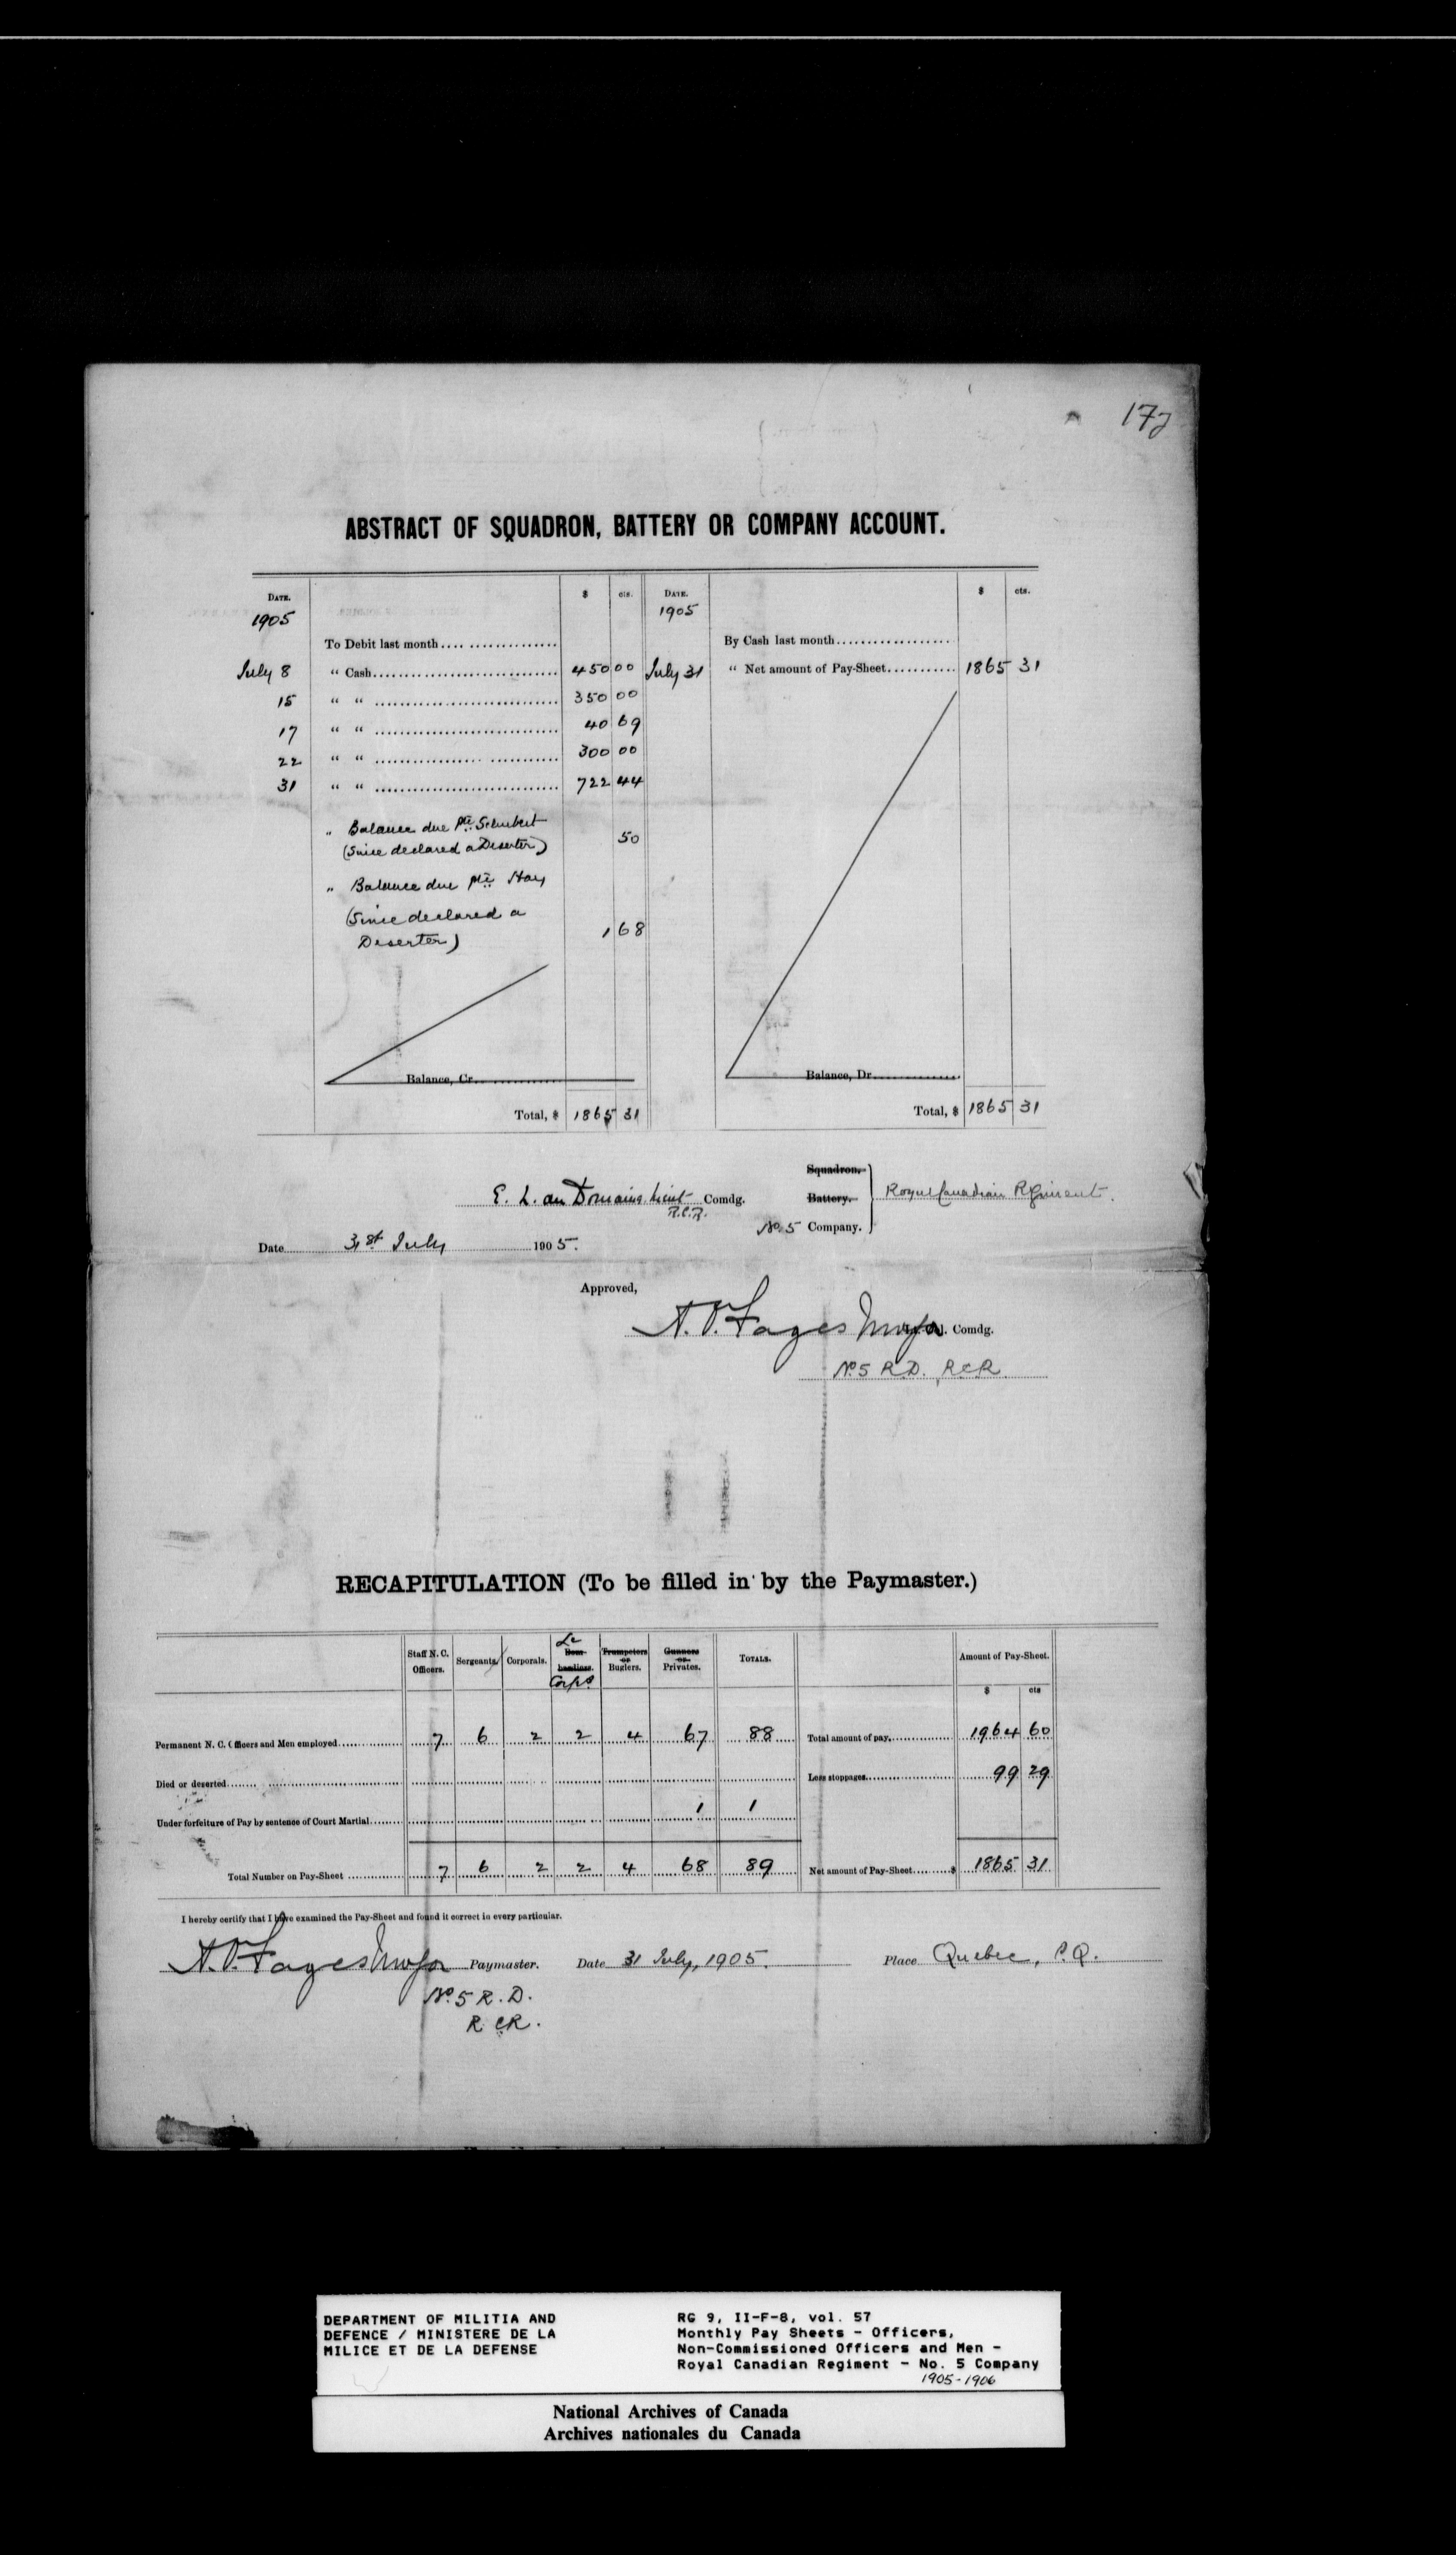 177
ABSTRACT OF SQUADRON, BATTERY OR COMPANY ACCOUNT.
DATE. $ cts. DATE. $ cts.
1905 1905
To Debit last month By Cash last month
July 8 " Cash 450 00 July 31 " Net amount of Pay-Sheet 1865 31
15 " " 350 00
17 " " 40 69
22 " " 300 00
31 " " 722 44
" Balance due Pte. Schubert
(Since declared a Deserter) 50
" Balance due Pte. Hay
(Since declared a
Deserter) 1 68
Balance, Cr. Balance, Dr.
Total, $ 1865 31 Total, $ 1865 31
Squadron.
E. L. du Domaine Lieut Comdg. Battery. Royal Canadian Regiment.
R.C.R.
No. 5 Company.
Date 31st July 1905.
Approved,
A. O. Fages Major Comdg.
No. 5 R.D. R.C.R.
RECAPITULATION (To be filled in by the Paymaster.)
Staff N. C. Officers. Sergeants. Corporals. Le Bom-bardiers. Corps Trumpeters or Buglers. Gunners or Privates. TOTALS. Amount of Pay-Sheet.
$ cts
Permanent N. C. Officers and Men employed 7 6 2 2 4 67 88 Total amount of pay 1964 60
Died or deserted Less stoppages 99 29
Under forfeiture of Pay by sentence of Court Martial 1 1
Total Number on Pay-Sheet 7 6 2 2 4 68 89 Net amount of Pay-Sheet $ 1865 31
I hereby certify that I have examined the Pay-Sheet and found it correct in every particular.
A. O. Fages Major Paymaster. Date 31 July, 1905. Place Quebec, P.Q.
No. 5 R. D.
R.C.R.
DEPARTMENT OF MILITIA AND
DEFENCE / MINISTERE DE LA
MILICE ET DE LA DEFENSE
RG 9, II-F-8, vol. 57
Monthly Pay Sheets - Officers,
Non-Commissioned Officers and Men -
Royal Canadian Regiment - No. 5 Company
1905-1906
National Archives of Canada
Archives nationales du Canada